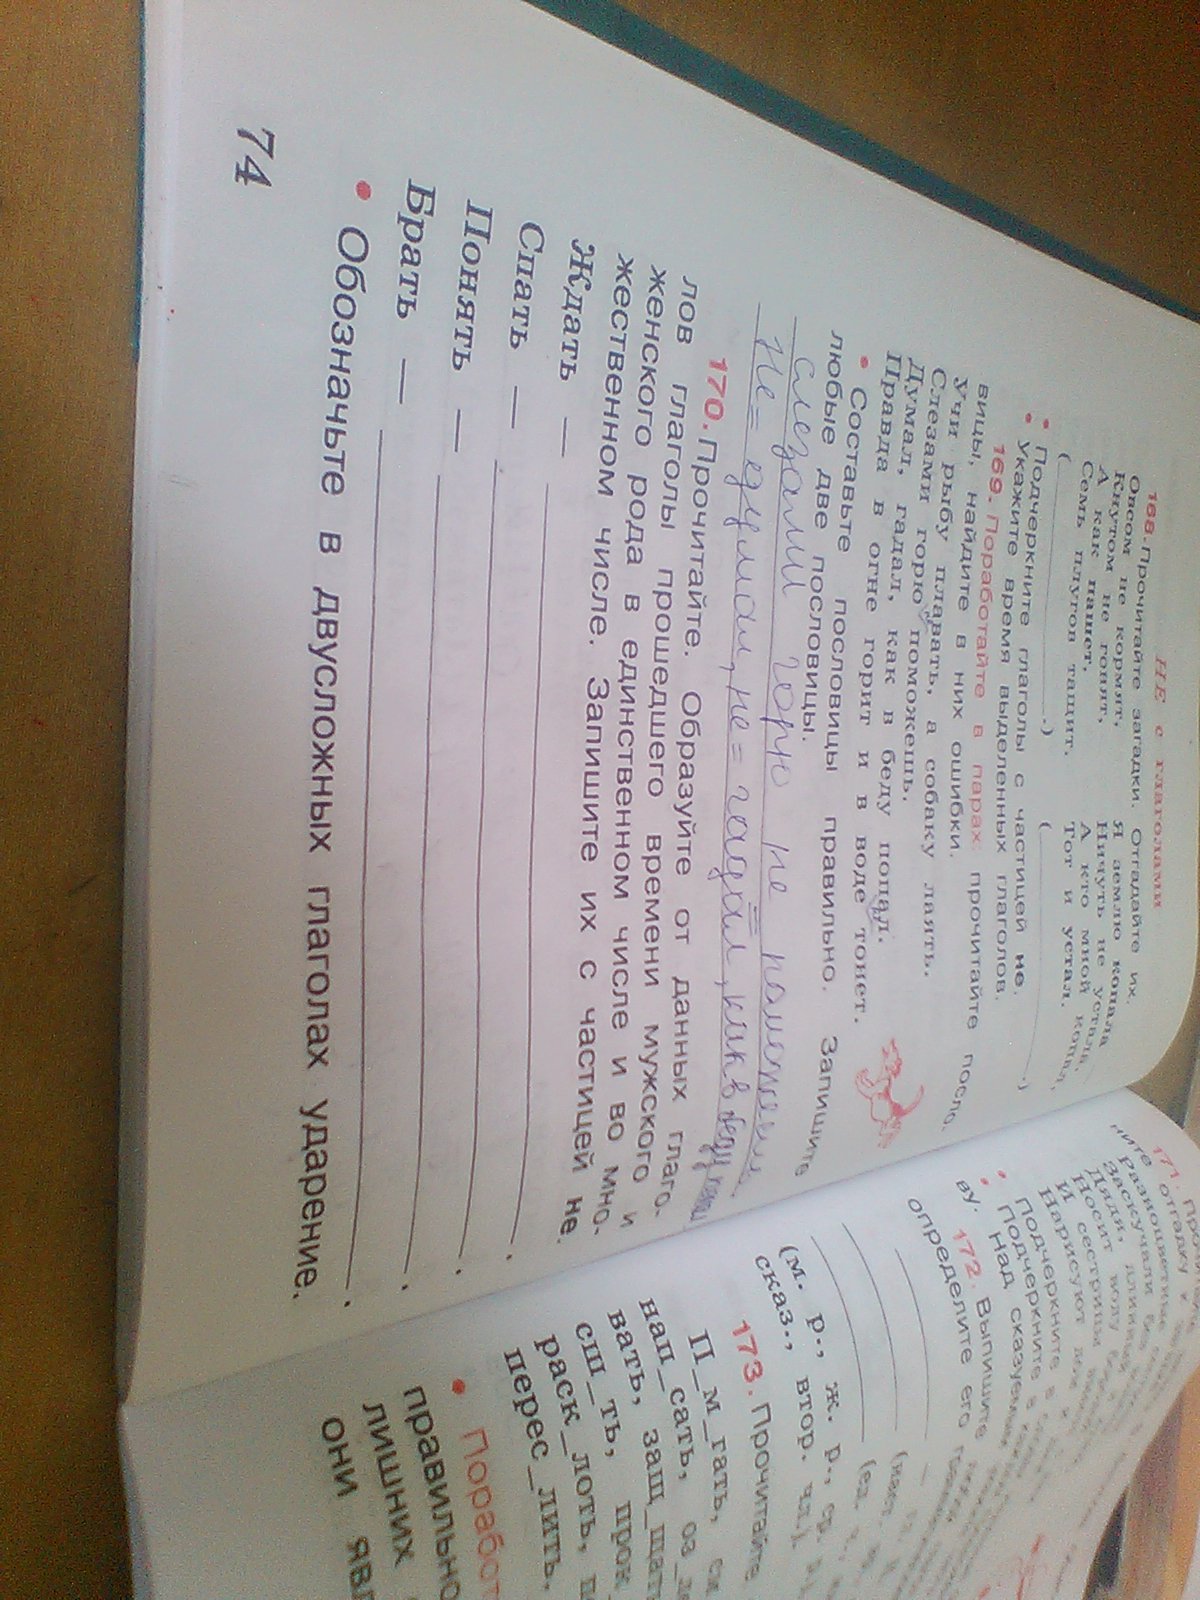 НЕ с глаголами
168. Прочитайте загадки. Отгадайте их.
Овсом не кормят,
Кнутом не гонят,
А как пашет,
Семь плугов тащит.
(.)
Я землю копала
Ничуть не устала.
А кто мной копал,
Тот и устал.
(.)
• Подчеркните глаголы с частицей не.
• Укажите время выделенных глаголов.
169. Поработайте в парах: прочитайте посло-
вицы, найдите в них ошибки.
Учи рыбу плавать, а собаку лаять.
Слезами горю поможешь.
Думал, гадал, как в беду попал.
Правда в огне горит и в воде тонет.
• Составьте пословицы правильно. Запишите
любые две пословицы.
слезами горю не
Не думал, не гадал, как в беду
170. Прочитайте. Образуйте от данных глаго-
лов глаголы прошедшего времени мужского и
женского рода в единственном числе и во мно-
жественном числе. Запишите их с частицей не.
Ждать — .
Спать — .
Понять — .
Брать — .
• Обозначьте в двусложных глаголах ударение.
74
171.
отгадку к
Разноцветные
Заскучали без
Дядя, длинный
Носит воду
И сестрицы
Нарисуют дом и
• Подчеркните в
• Подчеркните в
ву. Над сказуемым
172. Выпишите
определите его
(наст.
(ед. ч.,
(м. р., ж. р., ср.
сказ., втор. чл.)
173. Прочитайте.
П_м_гать, ск
нап_сать, оз_
вать, защ_щать
сш_ть, прок
раск_лоть, п
перес_лить.
• Поработ
правильно
лишних
они явл